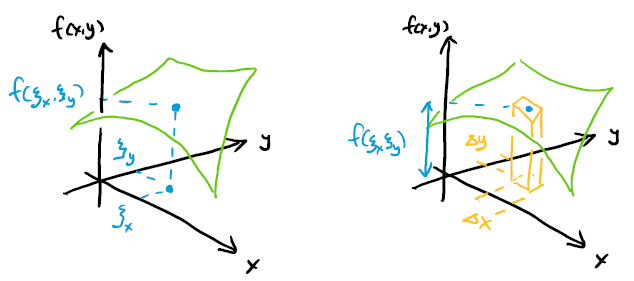 f(x,y)
f(ξx,ξy)
ξy
ξx
y
x
f(x,y)
f(ξxξy)
Δy
Δx
y
x